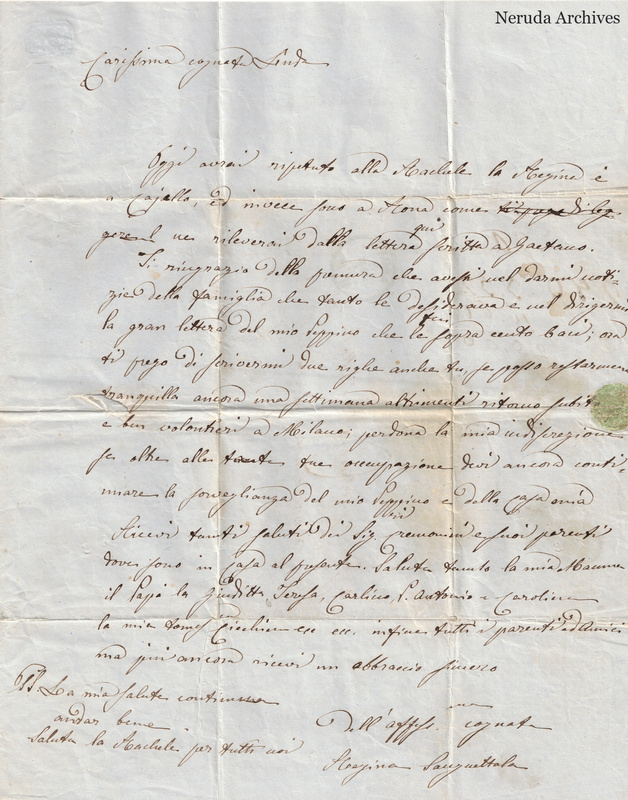 Neruda Archives
Carissima cognata Linda
Oggi avrai ripetuto alla Rachele la Regina è
a Casallo, ed invece sono a Rona come
ne rileverai dalla lettera qui scritta a Gaetano.
Ti ringrazio della premura che avesti nel darmi noti-
zie della famiglia che tanto le desiderava e nel dirigermi
la gran lettera del mio Peppino che le feci sopra cento baci; ora
ti prego di scrivermi due righe anche tu, se posso restarmene
tranquilla ancora una settimana altrimenti ritorno subito
e ben volontieri a Milano; perdona la mia indiscrezione
se oltre alle tue occupazione devi ancora conti-
nuare la sorveglianza del mio Peppino e della casa mia
Ricevi tanti saluti di Sig.ri Cremonini e suoi parenti
dove sono in casa al presente. Saluta tanto la mia Mamma
il Papà la Giuditta, Teresa, Carlino, P. Antonio e Carolina
la mia ecc ecc. infine tutti i parenti ed Amici
ma più ancora ricevi un abbraccio sincero
PS La mia salute continua
andar bene
Saluta la Rachele per tutti noi
Dell'affez.ma cognata
Regina Sanquettola